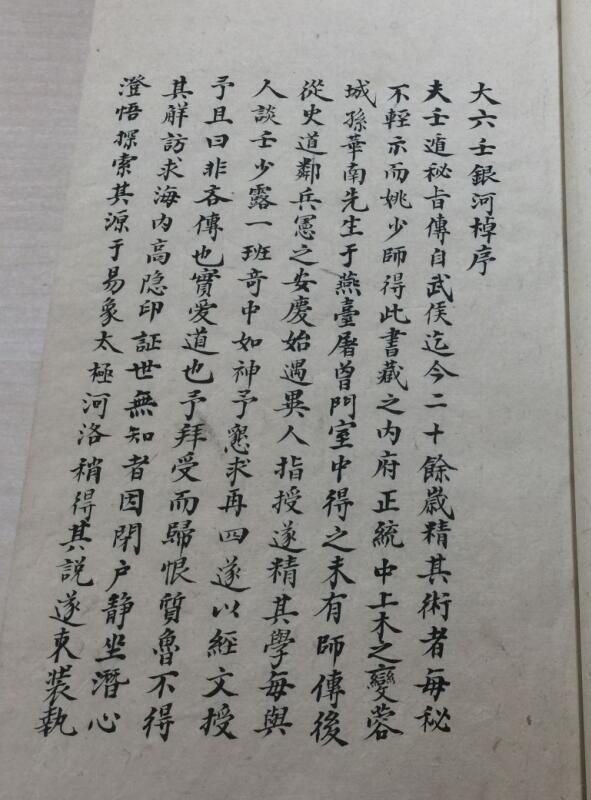 大六壬銀河棹序
夫壬遁秘旨傳自武侯迄今二十餘歲精其術者每秘
不輕示而姚少師得此書藏之内府正統中上木之變蓉
城孫華南先生于燕臺屠曾門室中得之未有師傳後
從史道鄰兵憲之安慶始遇異人指授遂精其學每與
人談壬少露一班奇中如神予懇求再四遂以經文授
予且曰非吝傳也實愛道也予拜受而歸恨質魯不得
其解訪求海内高隐印証世無知者因閉户静坐潛心
澄悟探索其源于易象太極河洛稍得其説遂束裝執